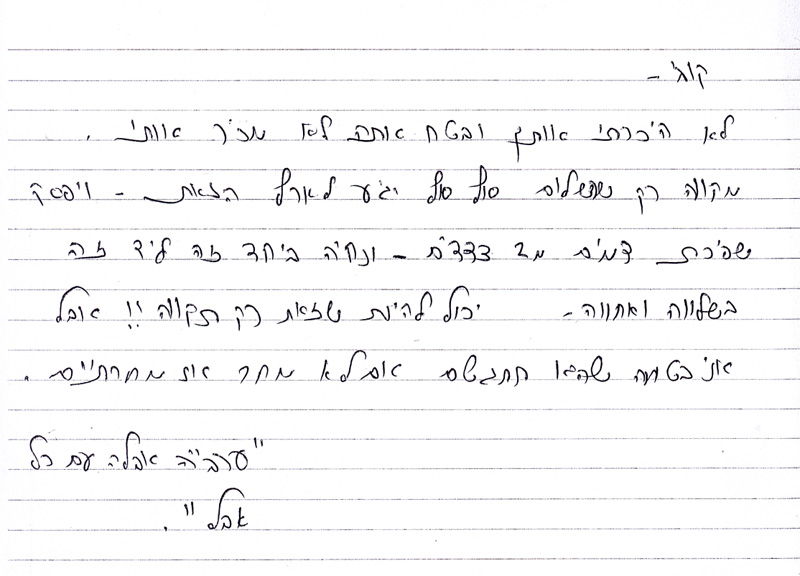 קוג' -
לא הכרתי אותך ובטח אתה לא מכיר אותי .
מקווה רק שהשלום סוף סוף יגיע לארץ הזאת - ויפסק
שפיכת דמים מ2 צדדים - ונחיה ביחד זה ליד זה
בשלווה ואחווה - יכול להיות שזאת רק תקווה !! אבל
אני בטוחה שהיא תתגשם אם לא מחר אז מחרתיים .
"ערביה אבלה עם כל
אבל " .